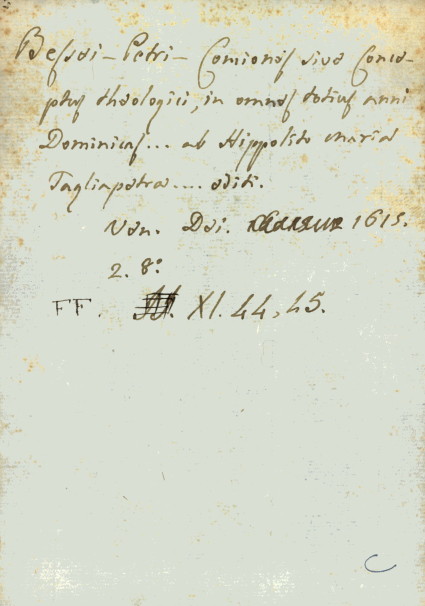 Bessei - Petri - Comiones sive Conce-
ptus theologici, in omnes totius anni
Dominicas... ab Hippolito Maria
Tagliapetra.... editi.
Ven. Dei. 1615.
2. 8°
FF. XI. 44, 45.
C